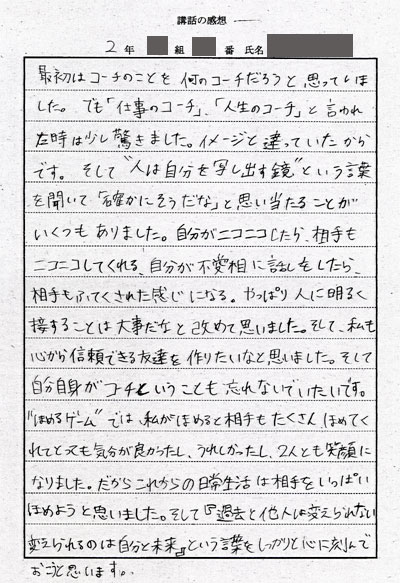 講話の感想
2年 組 番 氏名
最初はコーチのことを何のコーチだろうと思っていま
した。でも「仕事のコーチ」、「人生のコーチ」と言われ
た時は少し驚きました。イメージと違っていたから
です。そして"人は自分を写し出す鏡"という言葉
を聞いて「確かにそうだな」と思い当たることが
いくつもありました。自分がニコニコしたら、相手も
ニコニコしてくれる、自分が不愛相に話しをしたら、
相手もふてくされた感じになる。やっぱり人に明るく
接することは大事だなと改めて思いました。そして、私も
心から信頼できる友達を作りたいなと思いました。そして
自分自身がコーチということも忘れないでいたいです。
"ほめるゲーム"では、私がほめると相手もたくさんほめてく
れてとっても気分が良かったし、うれしかったし、2人とも笑顔に
なりました。だからこれからの日常生活は相手をいっぱい
ほめようと思いました。そして『過去と他人は変えられない
変えられるのは自分と未来』という言葉をしっかりと心に刻んで
おこうと思います。